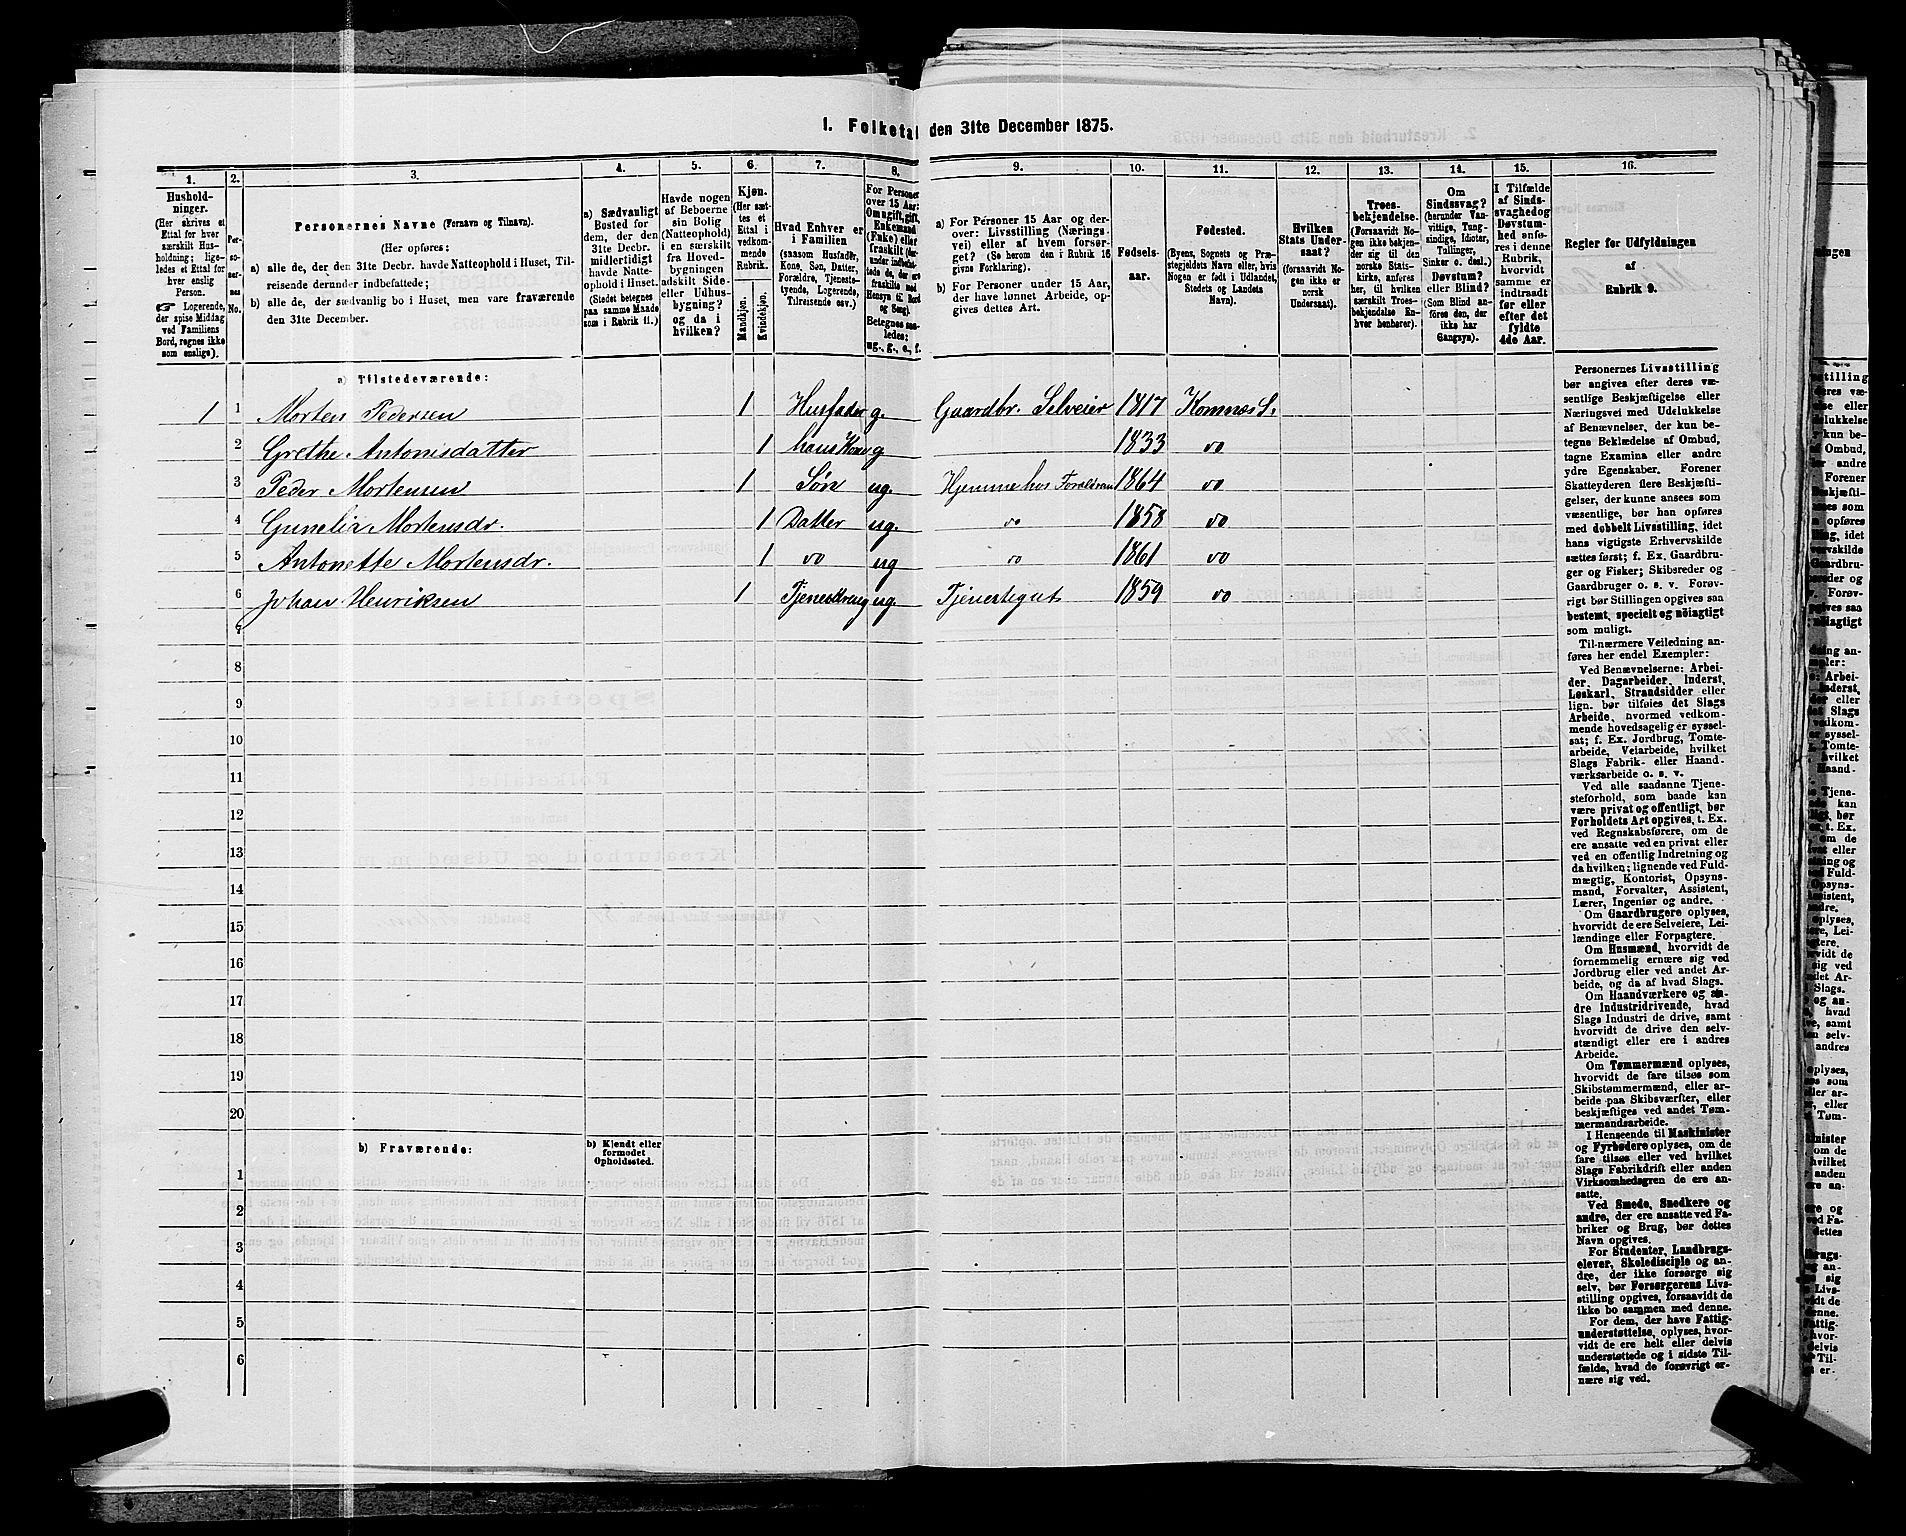 1. Folketal den 31te December 1875.
1. 2. 3. 4. 5. 6. 7. 8. 9. 10. 11. 12. 13. 14. 15. 16.
Hushold-
ninger.
(Her skrives et
Ettal for hver
særskilt Hus-
holdning; lige-
ledes et Ettal for
hver enslig
Person.
☞ Logerende,
der spise Middag
ved Familiens
Bord, regnes ikke
som enslige).
Per-
so-
ner-
nes
No.
Personernes Navne (Fornavn og Tilnavn).
(Her opføres:
a) alle de, der den 31te Decbr. havde Natteophold i Huset, Til-
reisende derunder indbefattede;
b) alle de, der sædvanlig bo i Huset, men vare fraværende
den 31te December.
a) Sædvanligt
Bosted for
dem, der den
31te Decbr.
midlertidigt
havde Natte-
ophold i Huset.
(Stedet betegnes
paa samme Maade
som i Rubrik 11.)
Havde nogen
af Beboerne
sin Bolig
(Natteophold)
i en særskilt
fra Hoved-
bygningen
adskilt Side-
eller Udhus-
bygning?
og da i
hvilken?
Kjøn.
(Her sæt-
tes et
Ettal i
vedkom-
mende
Rubrik.
Mandkjøn.
Kvindekjøn.
Hvad Enhver er
i Familien
(saasom Husfader,
Kone, Søn, Datter,
Forældre, Tjeneste-
tyende, Logerende,
Tilreisende osv.)
For Personer
over 15 Aar:
Om ugift, gift,
Enkemand
(Enke) eller
fraskilt
Betegnes saa-
ledes:
ug., g., e., f.
a) For Personer 15 Aar og der-
over: Livsstilling (Nærings-
vei) eller af hvem forsør-
get? (Se herom den i Rubrik 16
givne Forklaring).
b) For Personer under 15 Aar,
der have lønnet Arbeide, op-
gives dettes Art.
Fødsels-
aar.
Fødested.
(Byens, Sognets og Præ-
stegjeldets Navn eller, hvis
Nogen er født i Udlandet,
Stedets og Landets
Navn).
Hvilken
Stats Under-
saat?
(forsaavidt No-
gen ikke er
norsk
Undersaat).
Troes-
bekjendelse.
(Forsaavidt No-
gen ikke bekjen-
der sig til den
norske Stats-
kirke, anføres
her, til hvilken
særskilt Troes-
bekjendelse En-
hver henhører).
Om
Sindssvag?
(herunder Van-
vittige, Tung-
sindige, Idioter,
Tullinger,
Sinker o. desl.)
Døvstum?
eller Blind?
(Som Blind an-
føres den, der
ikke har
Gangsyn).
I Tilfælde
af Sinds-
svaghed og
Døvstum-
hed anfø-
res i denne
Rubrik,
hvorvidt
samme er
indtraadt
før eller
efter det
fyldte
4de Aar.
Regler for Udfyldningen
af
Rubrik 9.
a) Tilstedeværende:
1 1 Morten Pedersen 1 Husfader g. Gaardbr. Selveier 1817 Komnæs S.
2 Grethe Antonisdatter 1 hans Kone g 1833 do
3 Peder Mortensen 1 Søn ug. Hjemme hos Foreldrene 1864 do
4 Gunelia Mortensdr. 1 Datter ug. do 1858 do
5 Antonette Mortensdr. 1 do ug do 1861 do
6 Johan Henriksen 1 Tjenestdreng ug. Tjenestegut 1859 do
7
8
9
10
11
12
13
14
15
16
17
18
19
20
b) Fraværende:
b) Kjendt eller
formodet
Opholdssted.
1
2
3
4
5
6
Personernes Livsstilling
bør angives efter deres væ-
sentlige Beskjæftigelse eller
Næringsvei med Udelukkelse
af Benævnelser, der kun be-
tegne Beklædelse af Ombud,
tagne Examina eller andre
ydre Egenskaber. Forener
Skatteyderen flere Beskjæfti-
gelser, der kunne ansees som
væsentlige, bør han opføres
med dobbelt Livsstilling, idet
hans vigtigste Erhvervskilde
sættes først; f. Ex. Gaardbru-
ger og Fisker; Skibsreder og
Gaardbruger o. s. v. Forøv-
rigt bør Stillingen opgives saa
bestemt, specielt og nøiagtigt
som muligt.
Til nærmere Veiledning an-
føres her endel Exempler:
Ved Benævnelserne: Arbei-
der, Dagarbeider, Inderst,
Løskarl, Strandsidder eller
lign. bør tilføies det Slags
Arbeide, hvormed vedkom-
mende hovedsagelig er syssel-
sat; f. Ex. Jordbrug, Tomte-
arbeide, Veiarbeide, hvilket
Slags Fabrik- eller Haand-
værksarbeide o. s. v.
Ved alle saadanne Tjene-
steforhold, som baade kan
være privat og offentligt, bør
Forholdets Art opgives, t. Ex.
ved Regnskabsførere, om de
ere ansatte ved en privat eller
ved en offentlig Indretning og
da hvilken; lignende ved Fuld-
mægtig, Kontorist, Opsyns-
mand, Forvalter, Assistent,
Lærer, Ingeniør og andre.
Om Gaardbrugere oplyses,
hvorvidt de ere Selveiere, Lei-
lændinge eller Forpagtere.
Om Husmænd, hvorvidt de
fornemmelig ernære sig ved
Jordbrug eller ved andet Ar-
beide, og da af hvad Slags.
Om Haandværkere og an-
dre Industridrivende, hvad
Slags Industri de drive, samt
hvorvidt de drive den selv-
stændigt eller ere i andres
Arbeide.
Om Tømmermænd oplyses,
hvorvidt de fare tilsøs som
Skibstømmermænd, eller ar-
beide paa Skibsværfter, eller
beskjæftiges ved andet Tøm-
mermandsarbeide.
I Henseende til Maskinister
og Fyrbødere oplyses, om de
fare tilsøs eller ved hvilket
Slags Fabrikdrift eller anden
Virksomhedsgren de ere an-
satte.
Ved Smede, Snedkere og
andre, der ere ansatte ved Fa-
briker og Brug, bør dettes
Navn opgives.
For Studenter, Landbrugs-
elever, Skoledisciple og an-
dre, der ikke forsørge sig
selv, bør Forsørgerens Livs-
stilling opgives, forsaavidt de
ikke bo sammen med denne.
For dem, der have Fattig-
understøttelse, oplyses, hvor-
vidt de ere helt eller delvis
understøttede og i sidste Til-
fælde, hvad de forøvrigt er-
nære sig ved.